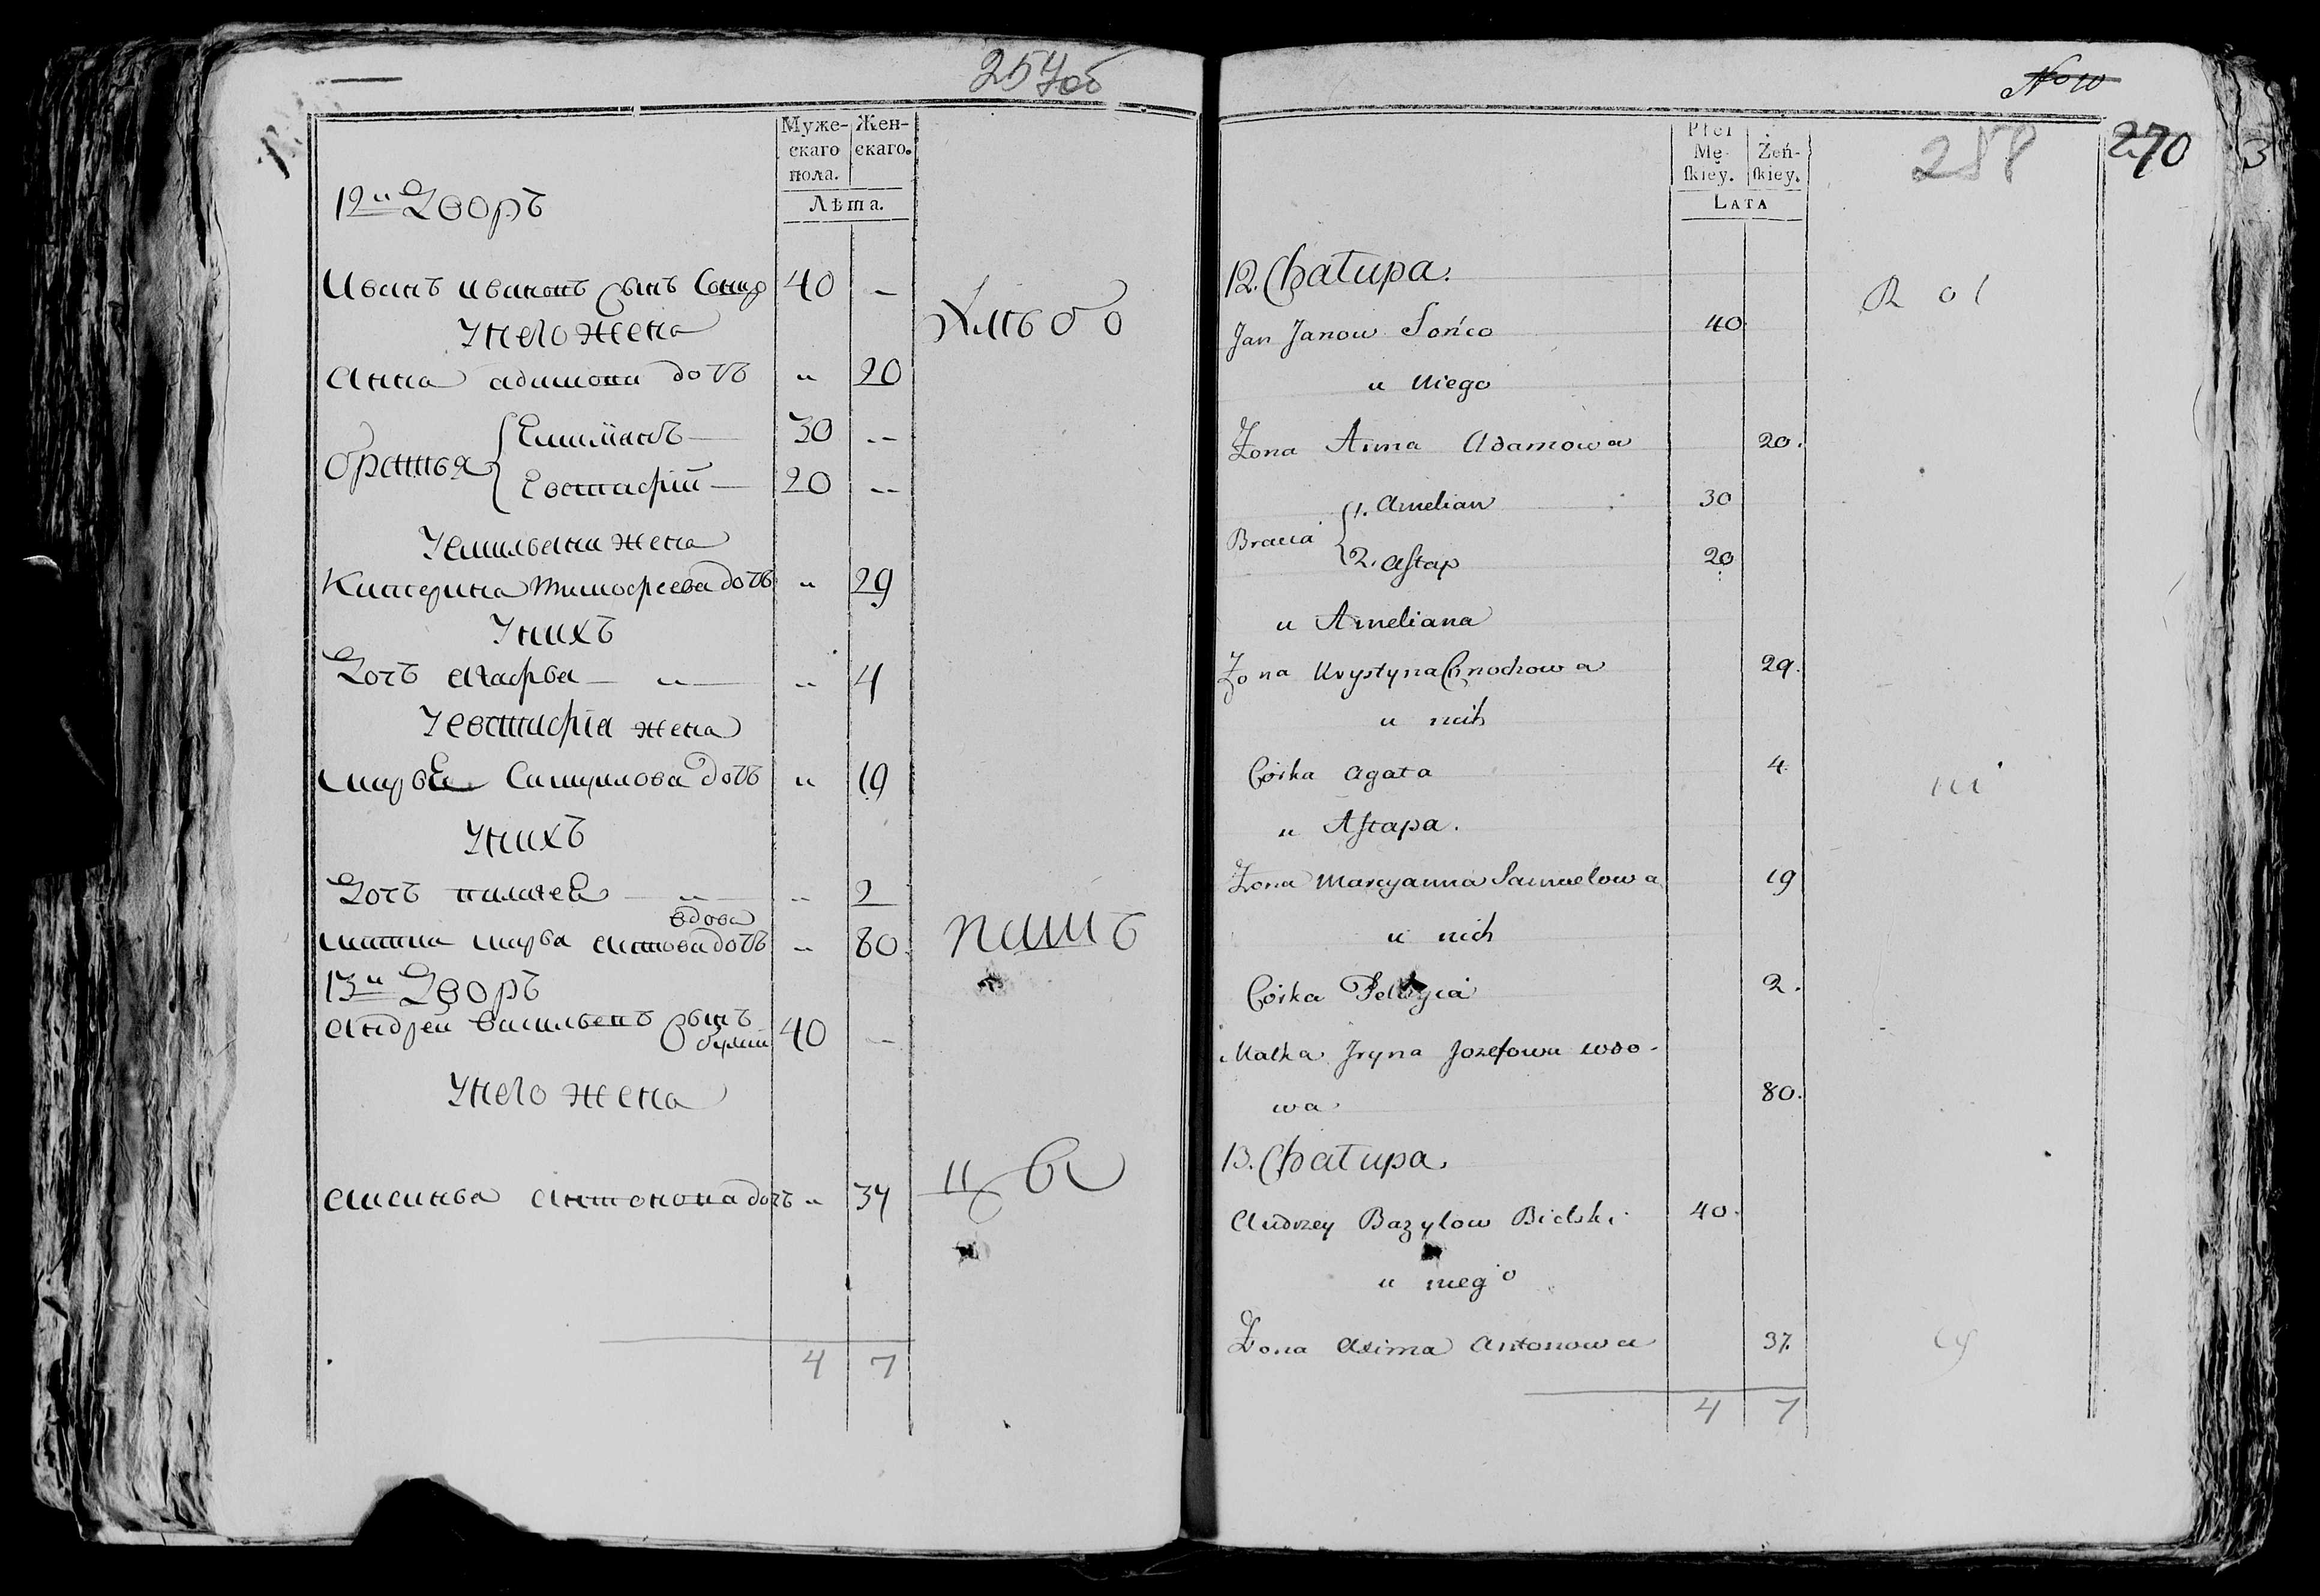 257об
Муже- Жен-
скаго скаго.
пола.
Лѣта.
12й Дворъ
Иванъ Ивановъ сынъ Сонцо 40 —
У него жена
Анна Адамова дочь " 20
братья
Емилианъ — 30 --
Евстафій — 20 --
У Емильяна жена
Катерина Тимофеева дочь " 29
У нихъ
Дочь Агафья — " — " 4
У Евстафія жена
Марья Самуилова дочь " 19
У нихъ
Дочь Палагея — " — " 2
вдова
матка Марья дочь " 80
13й Дворъ
Андрей Васильевъ сынъ 40 —
У него жена
Аксинья Антонова дочь " 37
4 7
Хлѣбо
пашъ
ц ы
No 10
270
3
258
Płci
Mę- Żeń-
skiey. skiey.
LATA
12. Chałupa.
Jan Janow Sońco 40
u niego
Żona Anna Adamowa 20.
Bracia
1. Amelian 30
2. Astap 20
u Ameliana
Żona Krystyna 29.
u nich
Córka Agata 4
u Astapa.
Żona Maryanna Samuelowa 19
u nich
Córka 2.
Matka Iryna Jozefowa wdo-
wa 80.
13. Chałupa.
Andrzey Bazylow Bielski 40.
u niego
Żona Axima Antonowa 37.
4 7
R o l
ni
cy